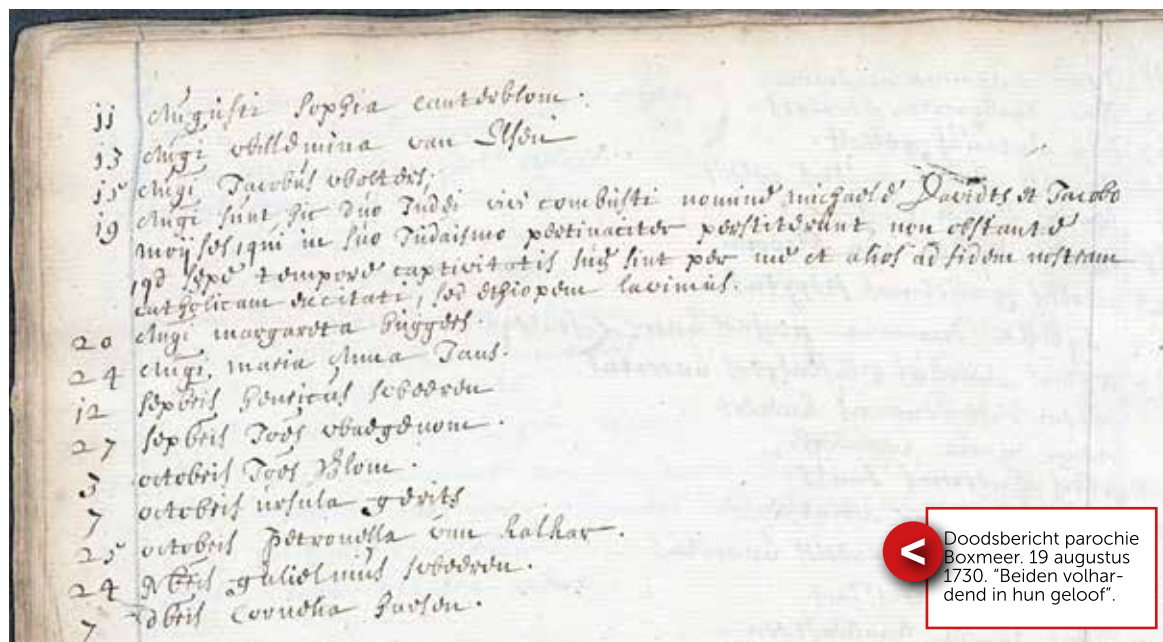 11 Augusti Sophia Canterblom.
13 Augi Willemina van Elsen
15 Augi Jacobus Wolters,
19 Augi sunt hic duo Judei vivi combusti nomine michaele Davidts et Jacobo
moijses, qui in suo Judaismo pertinaciter perstiterunt, non obstante
qd sepe tempore captivitatis sue sint per me et alios ad fidem nostram
catholicam excitati, sed ethiopem lavimus.
20 Augi margareta
24 Augi. maria Anna Jans.
12 septbris henricus
27 septbris Joes
3 octobris Joes Blom.
7 octobris ursula gerits
25 octobris Petronella van kalkar.
24 9bris gulielmus
7 Xbris Cornelia
<
Doodsbericht parochie
Boxmeer. 19 augustus
1730. “Beiden volhar-
dend in hun geloof”.